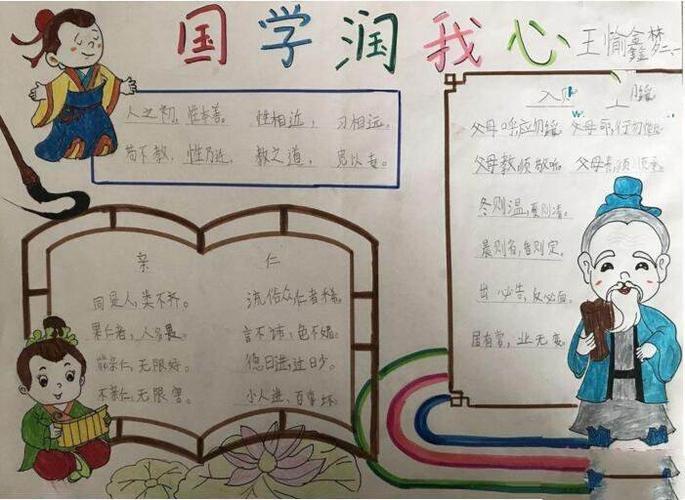 国学润我心
王愉鑫
人之初，性本善。 性相近，习相远。
苟不教，性乃迁。 教之道，贵以专。
入则
父母呼应勿缓 父母命，行勿
父母教须敬听 父母责须
冬则温，夏则清。
晨则省，昏则定。
出必告，反必面。
居有常，业无变。
亲 仁
同是人，类不齐。 流俗众，仁者稀。
果仁者，人多畏。 言不讳，色不媚。
能亲仁，无限好。 德日进，过日少。
不亲仁，无限害。 小人进，百事坏。